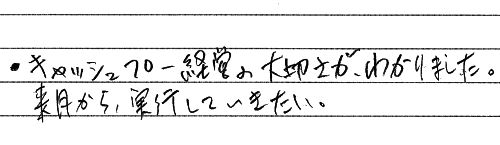 ・キャッシュフロー経営の大切さが、わかりました。
来月から、実行していきたい。